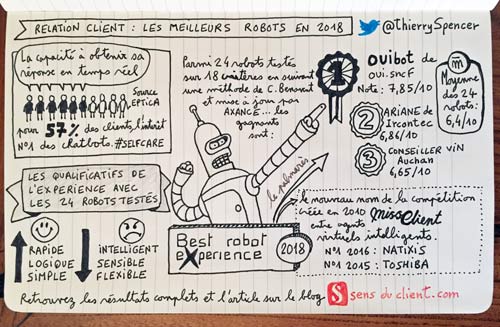 RELATION CLIENT : LES MEILLEURS ROBOTS EN 2018
@ThierrySpencer
La capacité à obtenir sa
réponse en temps réel
Source
EPTICA
pour 57% des clients, l'intérêt
N°1 des chatbots. #SELFCARE
Parmi 24 robots testés
sur 18 critères en suivant
une méthode de C. Benavent
et mise à jour par
AXANCE... les
gagnants
sont :
1
OUIbot de
OUI.sncf
Note : 7,85/10
2
ARIANE de
Ircantec
6,86/10
3
CONSEILLER VIN
Auchan
6,65/10
m
Moyenne
des 24
robots :
6,4/10
LES QUALIFICATIFS DE
L'EXPERIENCE AVEC
LES 24 ROBOTS TESTÉS
RAPIDE
LOGIQUE
SIMPLE
INTELLIGENT
SENSIBLE
FLEXIBLE
le palmarès
Best robot
eXperience
2018
le nouveau nom de la compétition
créée en 2010 Miss Client
entre agents
virtuels intelligents.
N°1 2016 : NATIXIS
N°1 2015 : TOSHIBA
Retrouvez les résultats complets et l'article sur le blog S sens du client.com